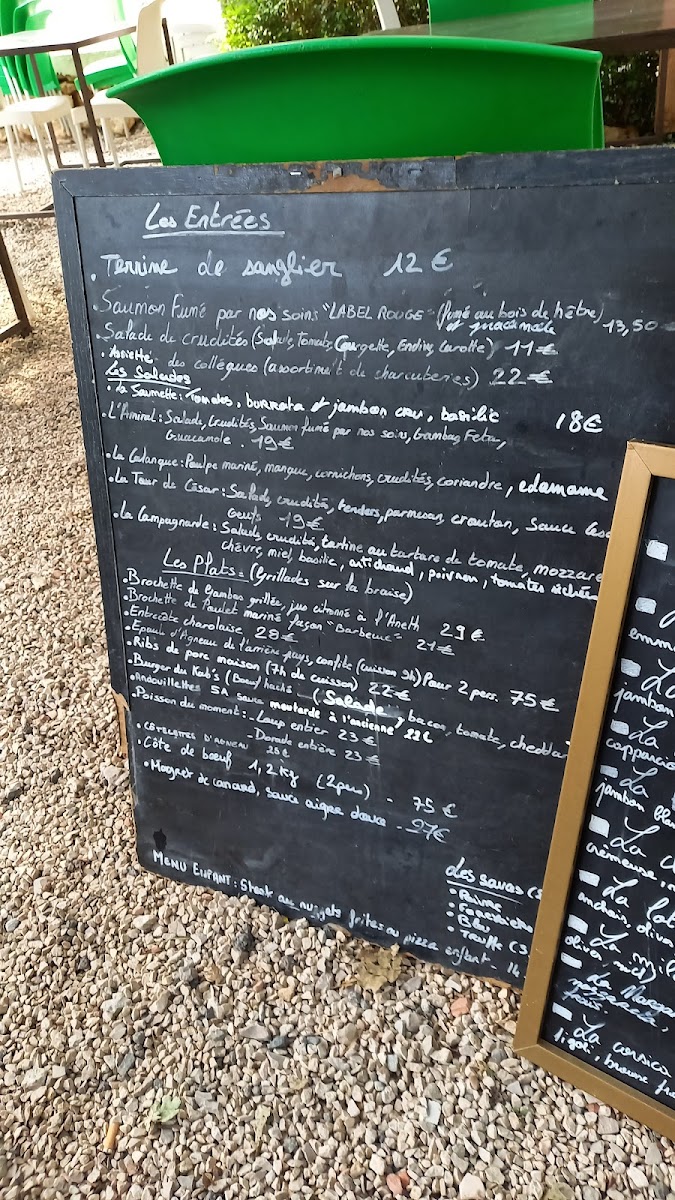 Les Entrées
• Terrine de sanglier 12 €
• Saumon Fumé par nos soins "LABEL ROUGE" (fumé au bois de hêtre)
et guacamole 13,50 €
• Salade de crudités (Salade, Tomate, Courgette, Endive, Carotte) 11 €
• Assiette des collègues (assortiment de charcuteries) 22 €
Les Salades
• La Saumette: Tomates, burrata et jambon cru, basilic 18 €
• L'Amiral: Salade, Crudités, Saumon fumé par nos soins, Gambas, Feta,
Guacamole. 19 €
• La Calanque: Poulpe mariné, mangue, cornichons, crudités, coriandre, edamame
• La Tour de César: Salade, crudité, tenders, parmesan, crouton, sauce
Oeufs 19 €
• La Campagnarde: Salade, crudité, tartine au tartare de tomate, mozzare
chèvre, miel, basilic, artichaud, poivron, tomates séchées
Les Plats: (Grillades sur la braise)
• Brochette de gambas grillée, jus citronné à l'Aneth 29 €
• Brochette de Poulet mariné façon "Barbecue" 21 €
• Entrecôte charolaise 28 €
• Epaule d'Agneau de l'arrière pays, confite (cuisson 9h) Pour 2 pers. 75 €
• Ribs de porc maison (7h de cuisson) 22 €
• Burger du Kab's (Boeuf haché (Salade, bacon, tomate, chedda
• Andouillettes 5A sauce moutarde à l'ancienne 22 €
• Poisson du moment: - Loup entier 23 €
- Dorade entière 23 €
• COTELETTES D'AGNEAU 25 €
• Côte de boeuf 1,2 kg (2pers) - 75 €
• Magret de canard, sauce aigre douce - 27 €
Les sauces
• Poivre
• Bleu
• Truffe (3,
MENU ENFANT: Steak ou nuggets frites ou pizza enfant - 14
emm
La
jambon
La
capparcio
La
jambon blan
La
crémeuse,
La
anchois, oliva
La mil
oliva
La Marga
La corsica
figari, brousse fr